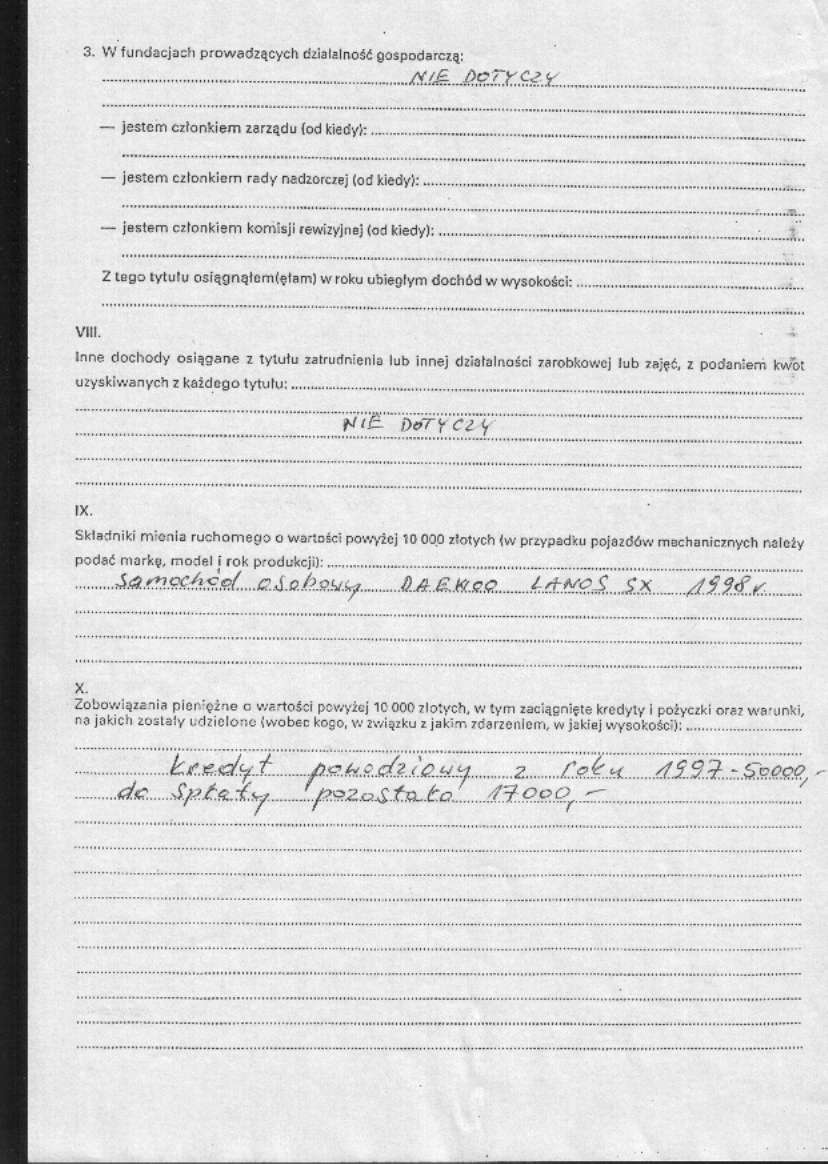 3. W fundacjach prowadzących działalność gospodarczą:
NIE DOTYCZY
— jestem członkiem zarządu (od kiedy):
— jestem członkiem rady nadzorczej (od kiedy):
— jestem członkiem komisji rewizyjnej (od kiedy):
Z tego tytułu osiągnąłem(ęłam) w roku ubiegłym dochód w wysokości:
VIII.
Inne dochody osiągane z tytułu zatrudnienia lub innej działalności zarobkowej lub zajęć, z podaniem kwot
uzyskiwanych z każdego tytułu:
NIE DOTYCZY
IX.
Składniki mienia ruchomego o wartości powyżej 10 000 złotych (w przypadku pojazdów mechanicznych należy
podać markę, model i rok produkcji):
Samochód osobowy DAEWOO LANOS SX 1998 r.
X.
Zobowiązania pieniężne o wartości powyżej 10 000 złotych, w tym zaciągnięte kredyty i pożyczki oraz warunki,
na jakich zostały udzielone (wobec kogo, w związku z jakim zdarzeniem, w jakiej wysokości):
kredyt powodziowy z roku 1997 - 50000,-
do spłaty pozostało 17000,-